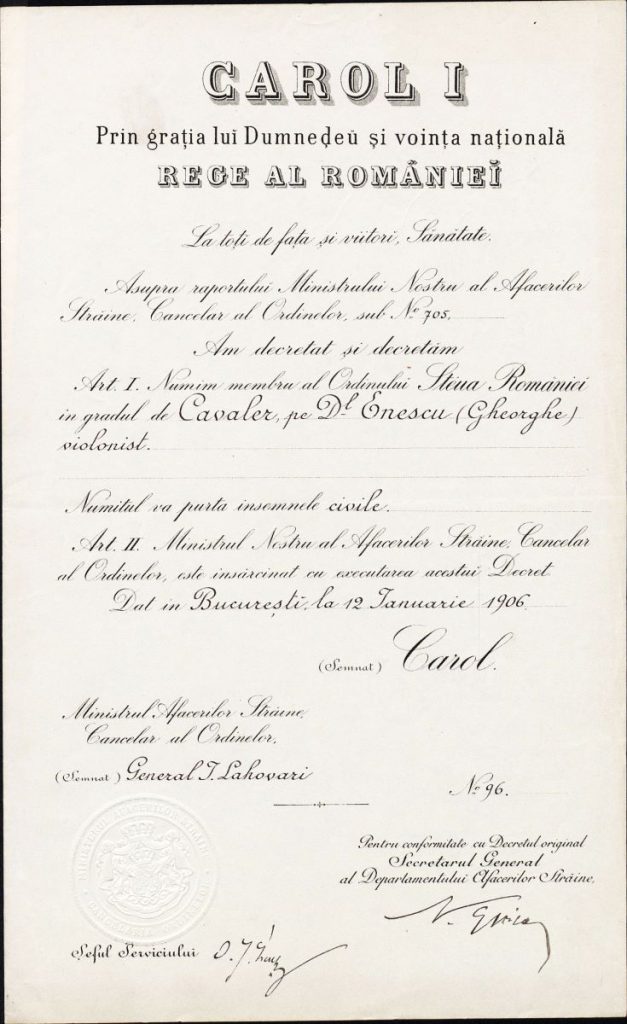 CAROL I
Prin grația luĭ Dumneḑeŭ și voința națională
REGE AL ROMÂNIEĬ
La toți de față și viitori, Sănătate.
Asupra raportului Ministrului Nostru al Afacerilor
Străine, Cancelar al Ordinelor, sub No 705,
Am decretat și decretăm
Art. I. Numim membru al Ordinului Stéua României
in gradul de Cavaler, pe Dl Enescu (Gheorghe)
violonist.
Numitul va purta insemnele civile.
Art. II. Ministrul Nostru al Afacerilor Străine, Cancelar
al Ordinelor, este insărcinat cu executarea acestui Decret
Dat in București, la 12 Ianuarie 1906.
(Semnat) Carol.
Ministrul Afacerilor Străine,
Cancelar al Ordinelor,
(Semnat) General I. Lahovari
No 96.
Pentru conformitate cu Decretul original
Secretarul General
al Departamentului Afacerilor Străine,
Șeful Serviciului